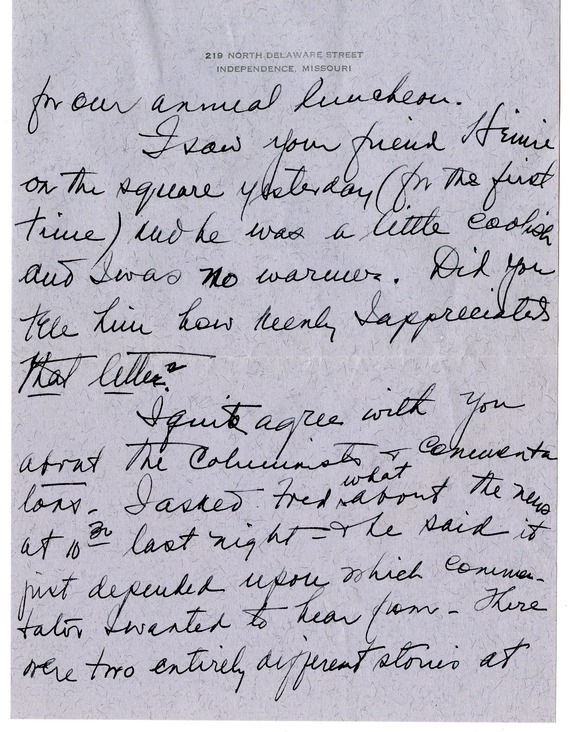 219 NORTH DELAWARE STREET
INDEPENDENCE, MISSOURI
for our annual luncheon.
I saw your friend Heinie
on the square yesterday (for the first
time) and he was a little coolish
and I was no warmer. Did you
tell him how keenly I appreciated
that letter?
I quite agree with you
about the Columnists & commenta
tors. I asked Fred what about the news
at 10 30 last night - & he said it
just depended upon which commen-
tator I wanted to hear from - There
were two entirely different stories at